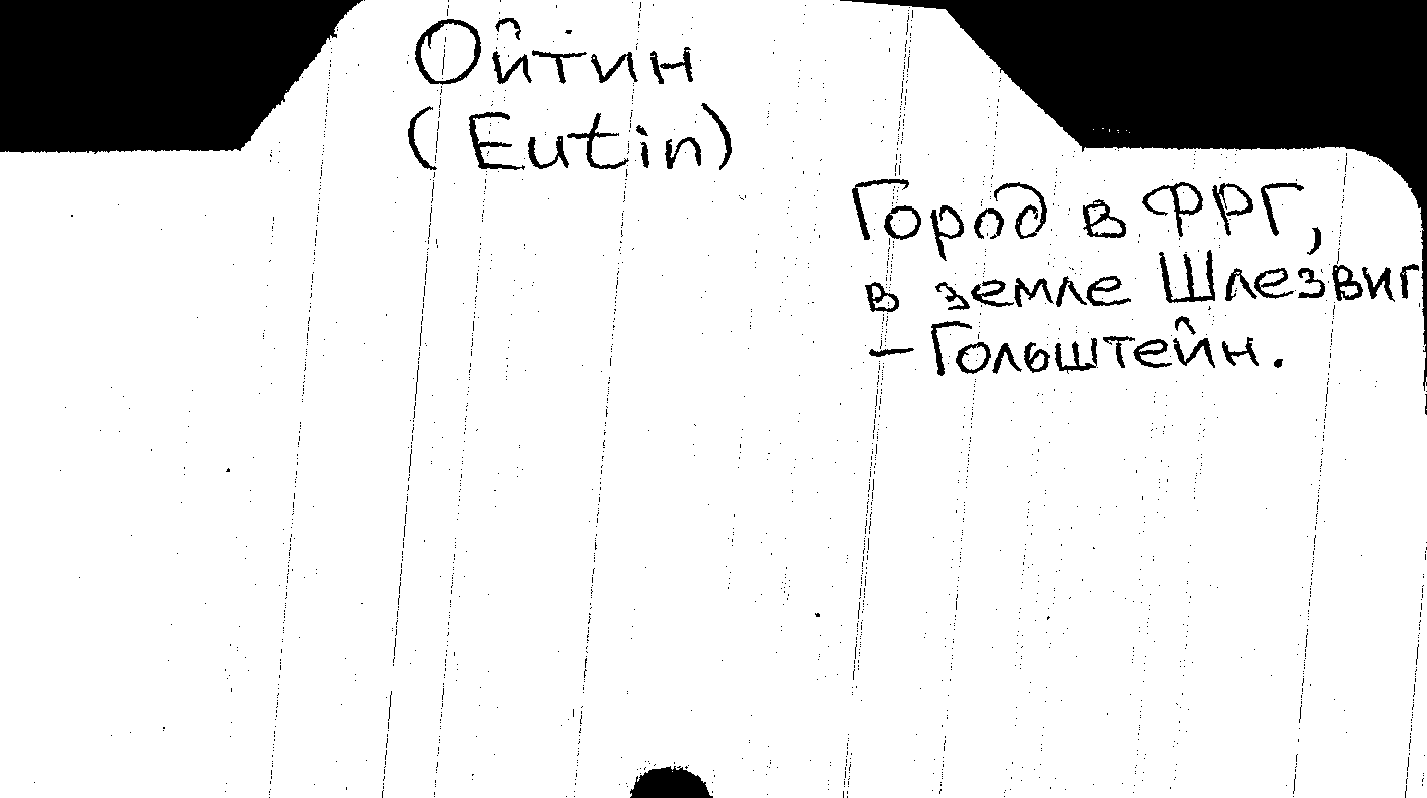 Ойтин
(Eutin)
Город в ФРГ,
в земле Шлезвиг
- Гольштейн.